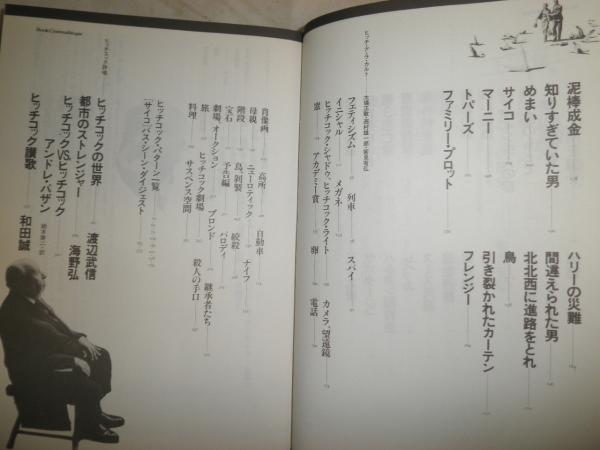 泥棒成金
知りすぎていた男
めまい
サイコ
マーニー
トパーズ
ファミリー・プロット
ハリーの災難
間違えられた男
北北西に進路をとれ
鳥
引き裂かれたカーテン
フレンジー
フェティシズム
列車
スパイ
イニシャル
メガネ
カメラ、望遠鏡
ヒッチコック・シャドウ、ヒッチコック・ライト
卵
窓
アカデミー賞
電話
Book Cinematheque
肖像画
高所
自動車
母親
ニューロティック
ナイフ
階段
鳥、剥製
絞殺
宝石
予告編
パロディ
劇場、オークション
ブロンド
継承者たち
旅
ヒッチコック劇場
殺人の手口
料理
サスペンス空間
ヒッチコック・パターン一覧
「サイコ」バス・シーン・ダイジェスト
ヒッチコックの世界
渡辺武信
都市のストレンジャー
海野弘
ヒッチコックVS.ヒッチコック
アンドレ・バザン
ヒッチコック讃歌
和田誠